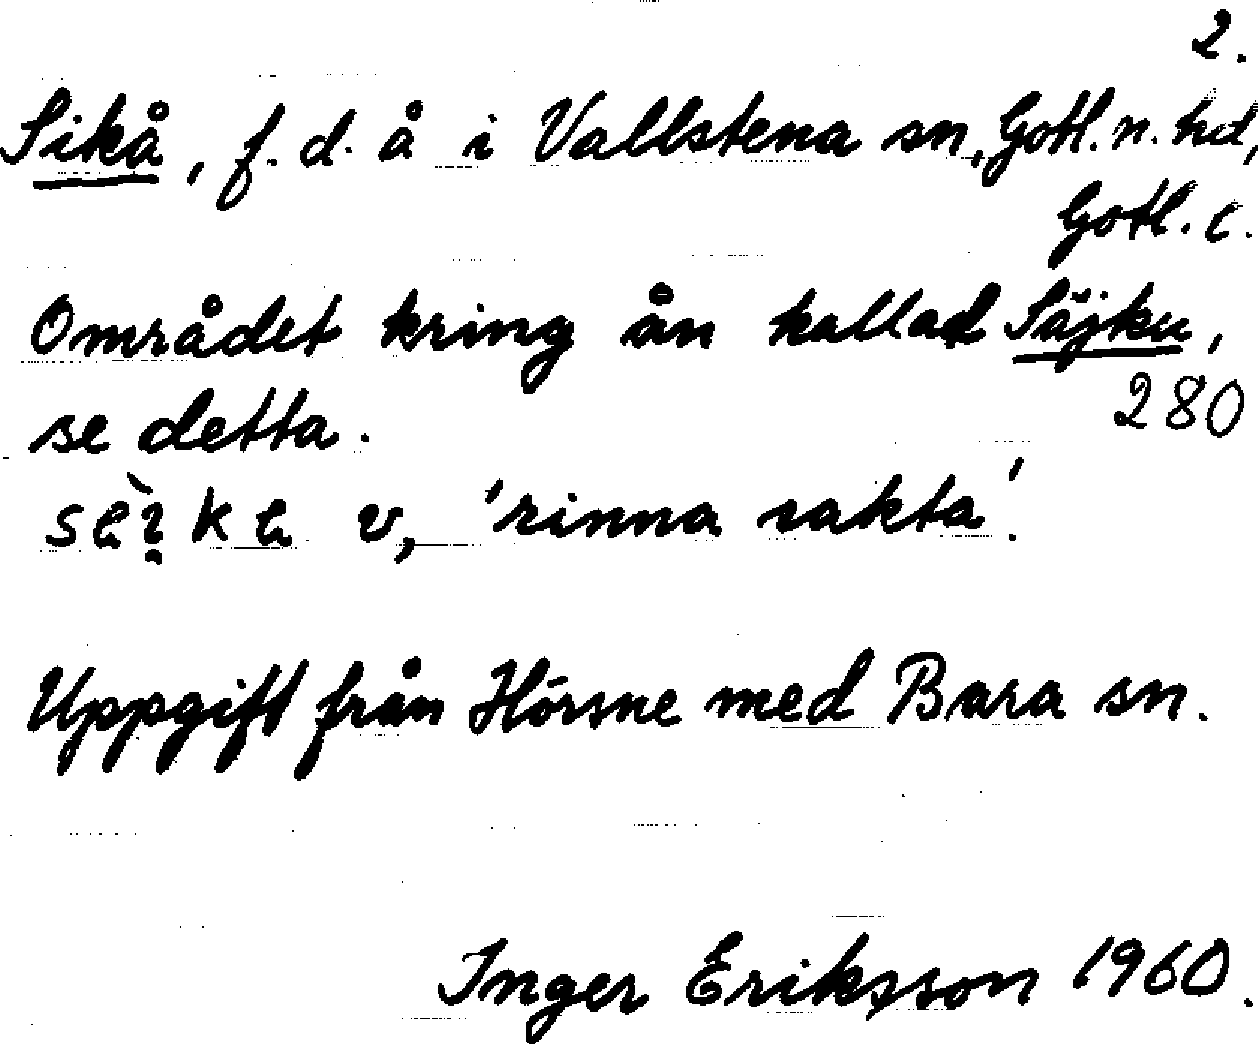 2.
Sikå, f. d. å i Vallstena sn, Gotl. n. hd,
Gotl. l.
Området kring ån kallad Säjku,
280
se detta.
v, 'rinna sakta'.
Uppgift från Hörsne med Bara sn.
Inger Eriksson 1960.